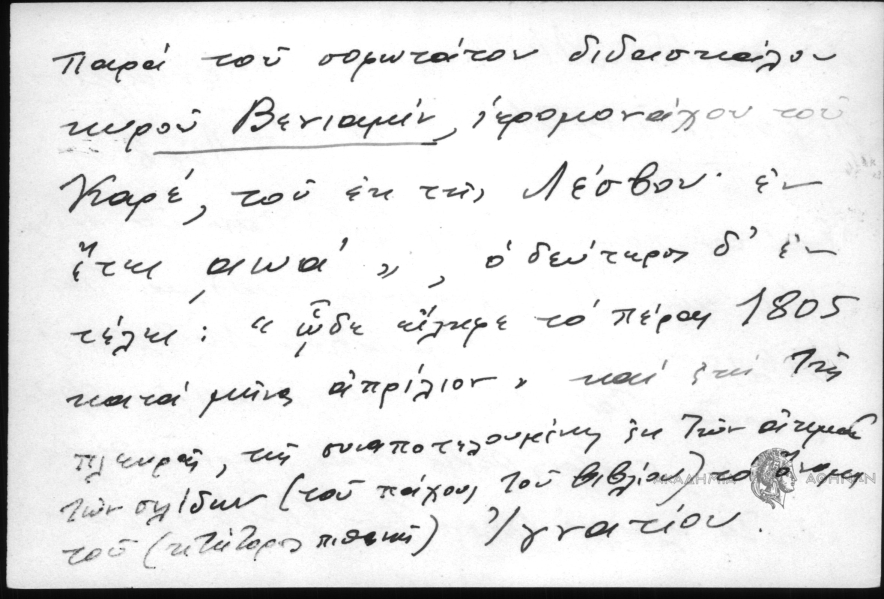 παρά τοῦ σοφωτάτου διδασκάλου
κυροῦ Βενιαμίν, ἱερομονάχου τοῦ
Καρέ, τοῦ ἐκ τῆς Λέσβου· ἐν
ἔτει ͵αωα´ », ὁ δεύτερος δ' ἐν
τέλει: « ᾧδε εἴληφε τό πέρας 1805
κατά μῆνα ἀπρίλιον» καί ἐπί τῆς
πλευρᾶς, τῆς συναποτελουμένης ἐκ τῶν ἀκμῶν
τῶν σελίδων (τοῦ πάχους τοῦ βιβλίου) τό ὄνομα
τοῦ (κτήτορος πιθανῶς) Ἰγνατίου.
ΑΚΑΔΗΜΙΑ ΑΘΗΝΩΝ